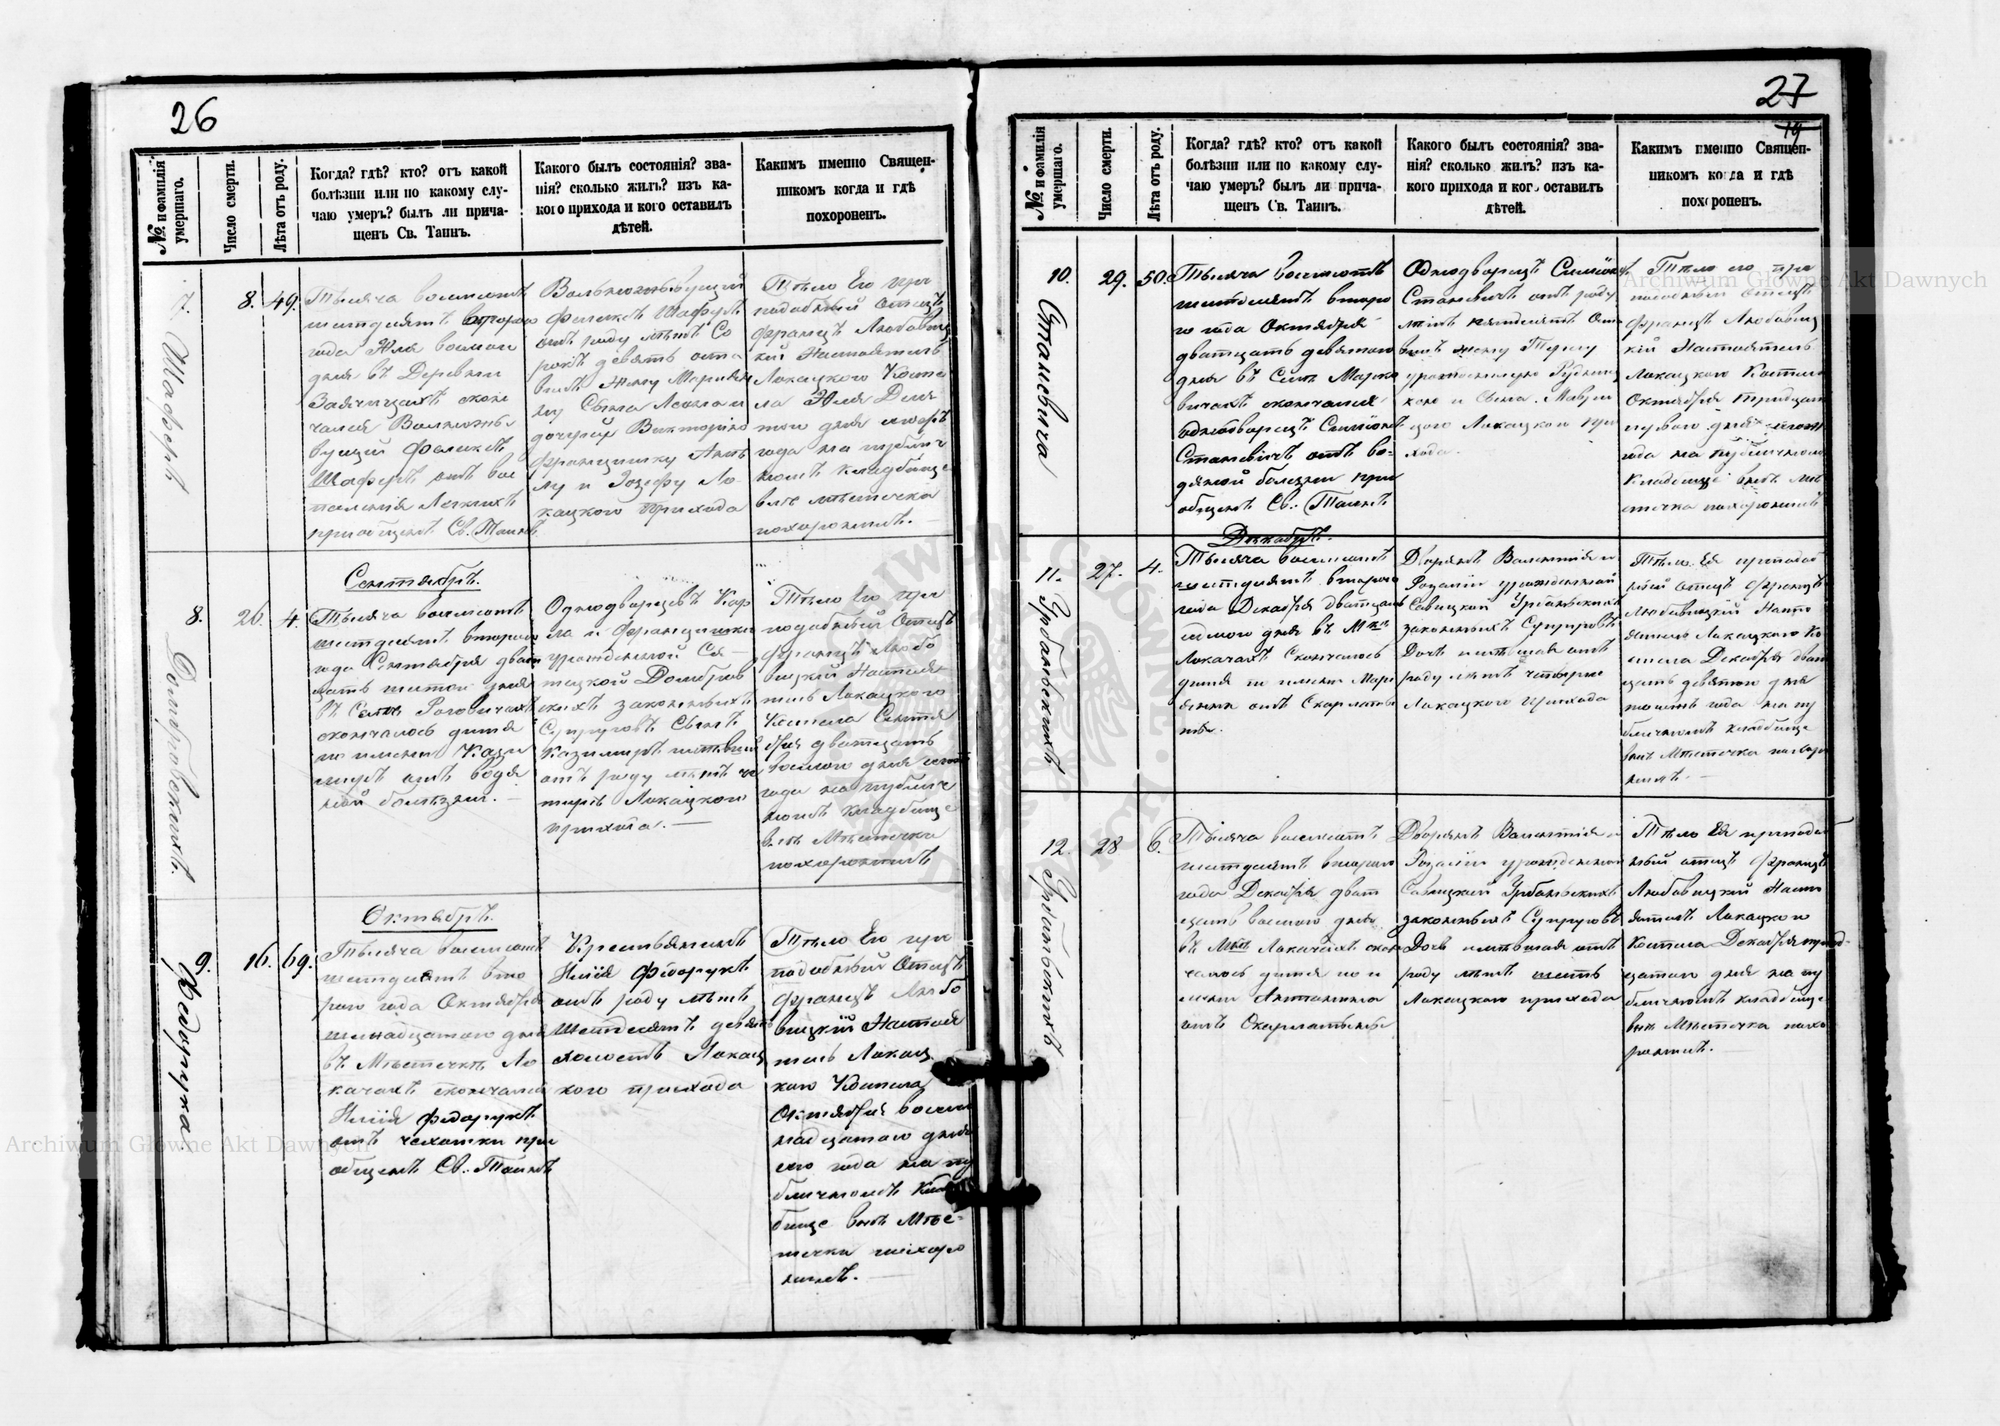 26
№. и фамилія умершаго.
Число смерти.
Лѣта отъ роду.
Когда? гдѣ? кто? отъ какой
болѣзни или по какому слу-
чаю умеръ? былъ ли прича-
щенъ Св. Таинъ.
Какого былъ состоянія? зва-
нія? сколько жилъ? изъ ка-
кого прихода и кого оставилъ
дѣтей.
Какимъ именно Священ-
никомъ когда и гдѣ
похороненъ.
7. Шаферъ
8.
49.
Тысяча восемьсотъ
шестдесятъ втораго
года Юля восмаго
дня въ Деревни
Заячицахъ скон
чался Вольножы
вущій Феликсъ
Шаферъ отъ вос
паленія Легкихъ
пріобщенъ Св. Таинъ
Вольножывущий
Феликсъ Шаферъ
отъ роду лѣтъ Со
рокъ девять оста
вилъ Жену Мариян
ну Сына Леона и
дочерей Викторію
Францишку Анъ
ну и Іозефу Ло
кацкого Прихода
Тѣло Его пре
подобный Отецъ
Францъ Любовиц
кій Настоятель
Локацкого Косте
ла Юля Деся
того дня сегожъ
года на публич
номъ кладбище
внѣ мѣстечка
похоронилъ.
Сентябрь.
8.
Домбровскихъ.
26.
4.
Тысяча восемсотъ
шестдесятъ втораго
года Сентября двад
цать шестаго дня
въ Селѣ Роговичахъ
скончалось дитя
по имени Кази
миръ отъ водя
ной болѣзни.
Однодворцевъ Кар
ла и Францишки
урожденной Ся
тецкой Домбров
скихъ законныхъ
Супруговъ Сынъ
Казимиръ имѣвший
отъ роду лѣтъ че
тыри Локацкого
прихода.
Тѣло Его пре
подобный Отецъ
Францъ Любо
вицкій Настоя
тель Локацкого
Костела Сентя
бря двадцать
восмого дня сегожъ
года на публич
номъ кладбище
внѣ Мѣстечка
похоронилъ
Октябрь.
9.
Федорука
16.
69.
Тысяча восемсотъ
шестдесятъ вто
рого года Октября
шенадцатого дня
въ Мѣстечкѣ Ло
качахъ скончался
Илія Федорукъ
отъ чахотки при
общенъ Св. Таинъ
Крестьянинъ
Илія Федорукъ
отъ роду лѣтъ
шестдесятъ девять
холостъ Локац
кого прихода
Тѣло Его пре
подобный Отецъ
Францъ Любо
вицкій Настоя
тель Локац
кого Костела
Октября восем
надцатого дня
сего года на пу
бличномъ Клад
бище внѣ Мѣс-
течка похоро
нилъ.
27
19
№. и фамилія умершаго.
Число смерти.
Лѣта отъ роду.
Когда? гдѣ? кто? отъ какой
болѣзни или по какому слу-
чаю умеръ? былъ ли прича-
щенъ Св. Таинъ.
Какого былъ состоянія? зва-
нія? сколько жилъ? изъ ка-
кого прихода и кого оставилъ
дѣтей.
Какимъ именно Священ-
никомъ когда и гдѣ
похороненъ.
10.
Становича
29.
50.
Тысяча восемсотъ
шестдесятъ второ
го года Октября
дватцать девятого
дня въ Селѣ Марко
вичахъ скончался
однодворецъ Симіонъ
Становичъ отъ во-
дяной болезни при
общенъ Св. Таинъ
Однодворецъ Симіонъ
Становичъ отъ роду
лѣтъ пятдесятъ Оста
вилъ жену Теклу
урожденную Рудниц
кою и Сына
Локацкого при
хода.
Тѣло его пре
подобный Отецъ
Францъ Любовиц
кій Настоятель
Локацкого Костела
Октября тридцать
первого дня сегожъ
года на публичномъ
Кладбище внѣ мѣ
стечка похоронилъ
Декабрь.
11.
Урбанъскихъ
27.
4.
Тысяча восемсотъ
шестдесятъ второго
года Декабря дватцать
седмого дня въ Мѣс
Локачахъ Скончалось
дитя по имени Мари
янна отъ Скарлаты
ны.
Дворянъ Валентія и
Розаліи урожденной
Савицкой Урбаньскихъ
законныхъ Супруговъ
Дочь имѣвшая отъ
роду лѣтъ четыри
Локацкого прихода
Тѣло Ея преподоб
ный отецъ Францъ
Любовицкій Насто
ятель Локацкого Ко
стела Декабря двад
цать девятого дня
тогожъ года на пу
бличномъ кладбище
внѣ Мѣстечка похоро
нилъ.
12.
Урбанъскихъ
28
6.
Тысяча восемсотъ
шестдесятъ второго
года Декабря дват
цать восмого дня
въ Мѣс Локачахъ скон
чалось дитя по и
мени Антонина
отъ Скарлатыны
Дворянъ Валентія и
Розаліи урожденной
Савицкой Урбаньскихъ
законныхъ Супруговъ
Дочь имѣвшая отъ
роду лѣтъ шесть
Локацкого прихода
Тѣло Ея преподоб
ный отецъ Францъ
Любовицкій Насто
ятель Локацкого
Костела Декабря трид-
цатого дня на пу
бличномъ кладбище
внѣ Мѣстечка похо
ронилъ.
Archiwum Główne Akt Dawnych
Archiwum Główne Akt Dawnych